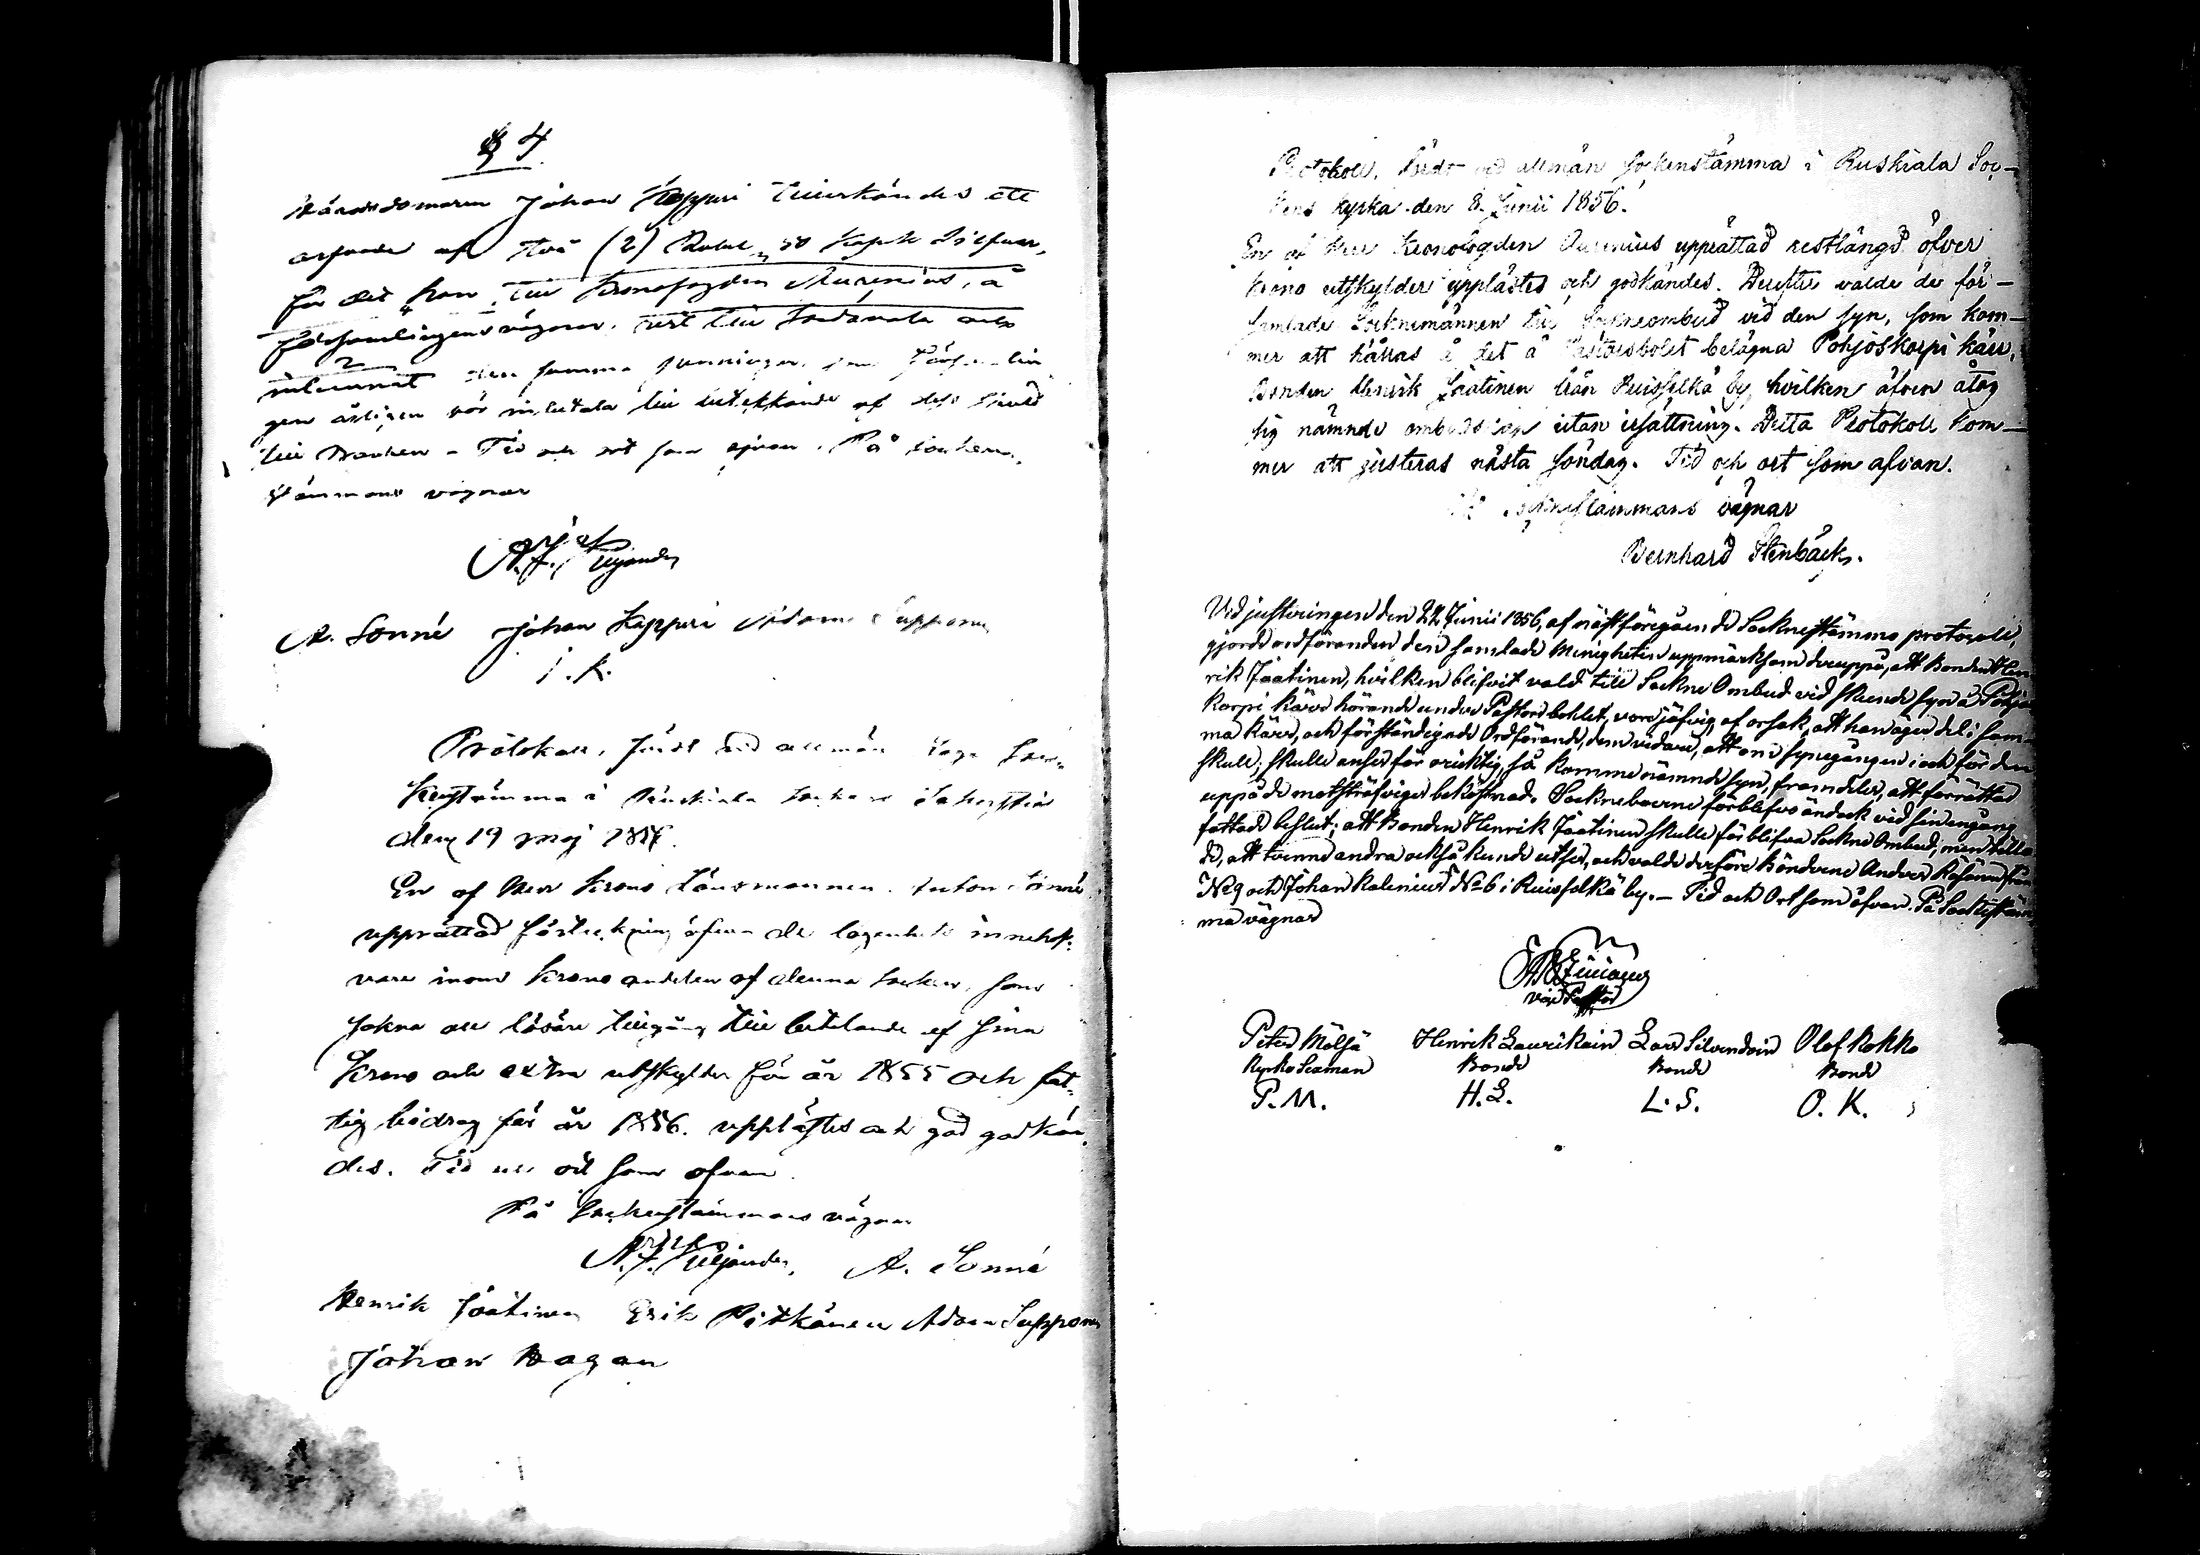 § 4
Häradsdomaren Johan Kappui tillerkändes ett
arfvode af två (2) Rubel 50 Kopek Silfver,
för det han till Kronofogden Aurenius, å
församlingens vägnar, rest till Sordavala och
inlemnat den summa penningar, som Församlin
gen årligen bör inbetala till af dess skuld
till Banken. Tid och ort som ofvan. På Socken
stämmans vägnar
A. J. Kiljander
A. Sonné Johan Kappui Adam Supponen
J. K.
Protokoll, fördt vid allmän laga Soc-
kenstämma i Ruskiala Sockens Sakerstia
den 19 Maj 1856.
En af Herr Krono Länsmannen Anton Sonné
upprättad förteckning öfver de lägenhets innehaf-
vare inom Krono andelen af denna Socken, som
sakna all lösöre tillgång till betalande af sina
Krono och extra utskylder för år 1855 och fat-
tig bidrag för år 1856. upplästes och god godkän-
des. Tid och ort som ofvan.
På Sockenstämmans vägnar
A. J. Kiljander. A. Sonné
Henrik Jäätinen Erik Pitkänen Adam Supponen
Johan Hagan
Protokoll, fördt vid allmän Sockenstämma i Ruskiala Soc-
kens kyrka den 8. Junii 1856.
En af Herr Kronofogden Aurenius upprättad restlängd öfver
krono utskylder upplästes och godkändes. Derefter valde de för-
samlade Socknemännen till Sockneombud vid den syn, som kom-
mer att hållas å det å Pastorsbolet belägna Pohjoskorpi kärr,
Bonden Henrik Jäätinen från Ruisselkä by, hvilken äfven åtog
sig nämnde ombudskap utan ersättning. Detta Protokoll kom-
mer att justeras nästa Söndag. Tid och ort som ofvan.
På Socknestämmans vägnar
Bernhard Stenbäck.
Vid justeringen den 22 Junii 1856, af nästföregående Socknestämmo protocoll,
gjorde ordföranden den samlade Menigheten uppmärksam deruppå, att Bonden Hen
rik Jäätinen, hvilken blifvit vald till Sockne Ombud vid skeende syn å Pohjois
korpi kärr hörande under Pastors bohlet, vore jäfvig, af orsak, att han äger del i sam-
ma kärr, och förständigade Ordförande, dem vidare, att om synegången i och för den
skull, skulle anses för oricktig, så komme nämnde syn, framdeles, att förrättas
uppå de motsträfviges bekostnad. Sockneboerne förblefvo ändock vid sin engång
fattade beslut; att Bonden Henrik Jäätinen skulle förblifva Sockne Ombud, men tillade
de, att tvenne andra också kunde utses, och valde derföre Bönderne Anders Räsänen från
No 9 och Johan Kalenius No 6 i Ruisselkä by. — Tid och Ort som ofvan. På Sockestäm
ma vägnar
Vice Pastor
Peter Mölsä Henrik Laurikain Lars Silvendoin Olof Kokko
Kyrko Sexman Bonde Bonde Bonde
P. M. H. L. L. S. O. K.